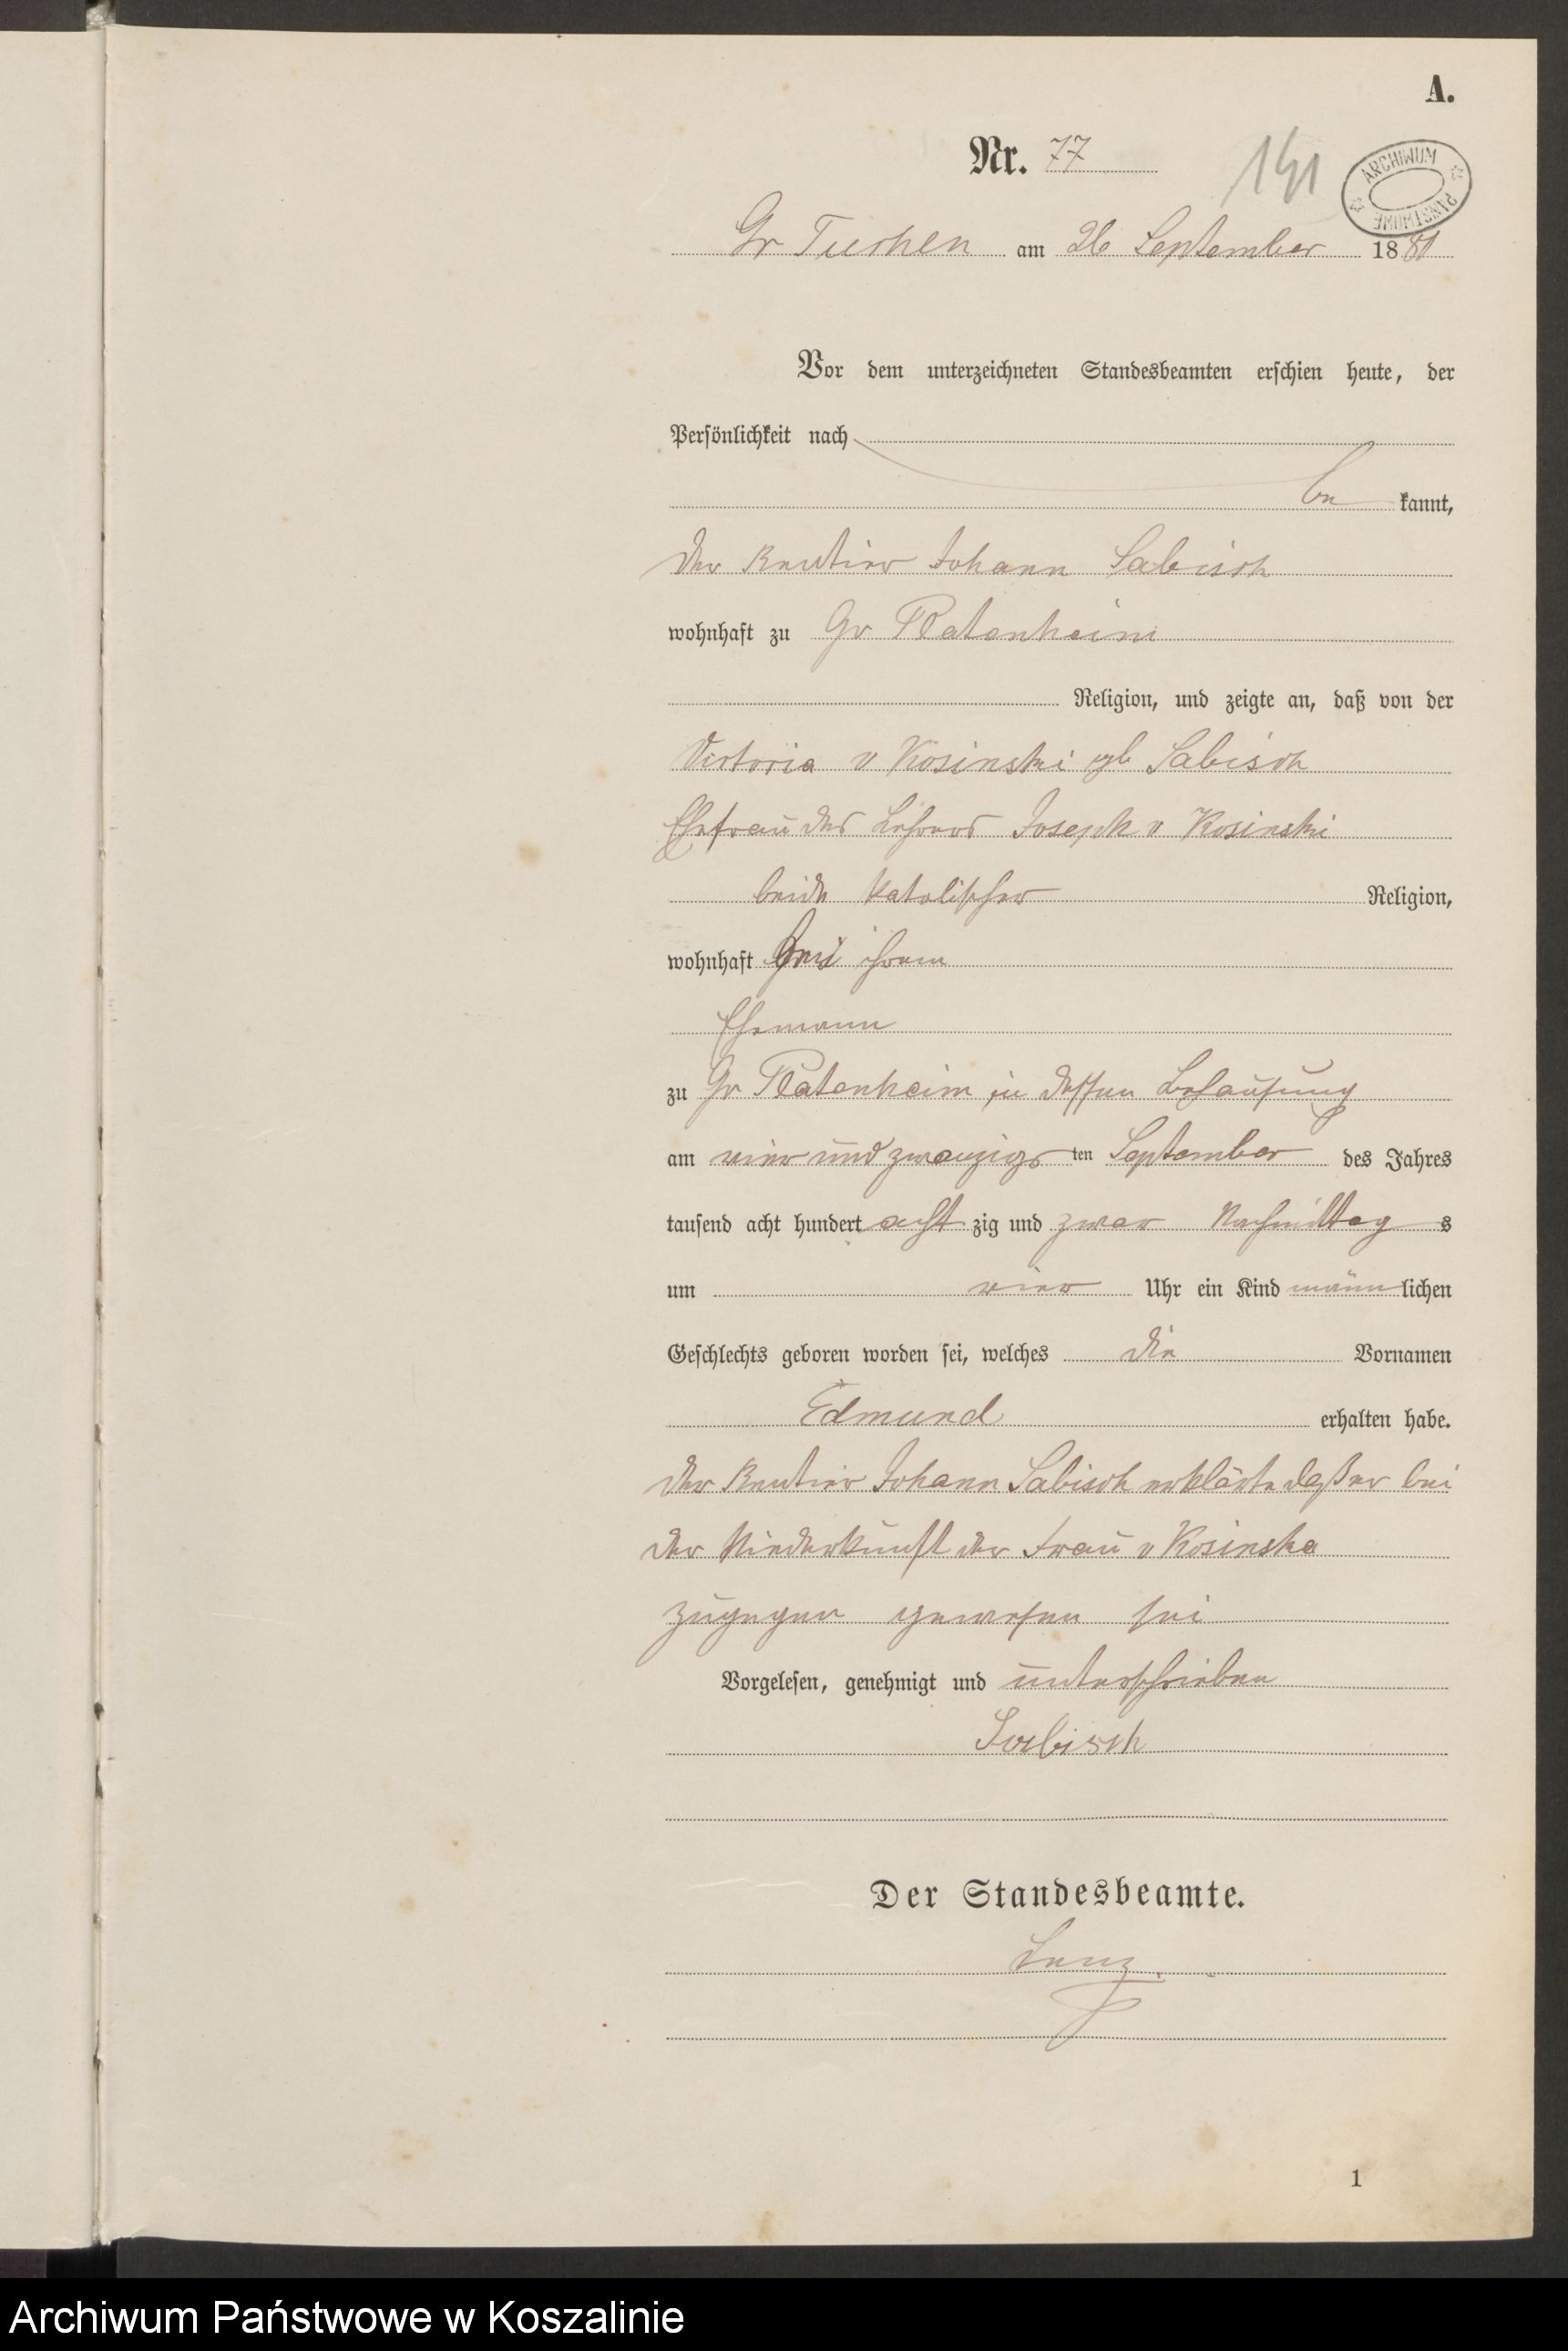 A.
Nr. 77
141
ARCHIWUM PAŃSTWOWE
Gr Tuchen am 26 September 1880
Vor dem unterzeichneten Standesbeamten erschien heute, der
Persönlichkeit nach
be kannt,
der Rentier Johann Sabisch
wohnhaft zu Gr Platenheim
Religion, und zeigte an, daß von der
Victoria v Kosinski geb Sabisch
Ehefrau des Lehrers Joseph v Kosinski
beide katolischer Religion,
wohnhaft bei ihrem
Ehemann
zu Gr Platenheim in dessen Behausung
am vier und zwanzigs ten September des Jahres
tausend acht hundert acht zig und zwar Nachmittag s
um vier Uhr ein Kind männ lichen
Geschlechts geboren worden sei, welches die Vornamen
Edmund erhalten habe.
Der Rentier Johann Sabisch erklärte daß er bei
der Niederkunft der Frau v Kosinska
zugegen gewesen sei
Vorgelesen, genehmigt und unterschrieben
Sabisch
Der Standesbeamte.
1
Archiwum Państwowe w Koszalinie